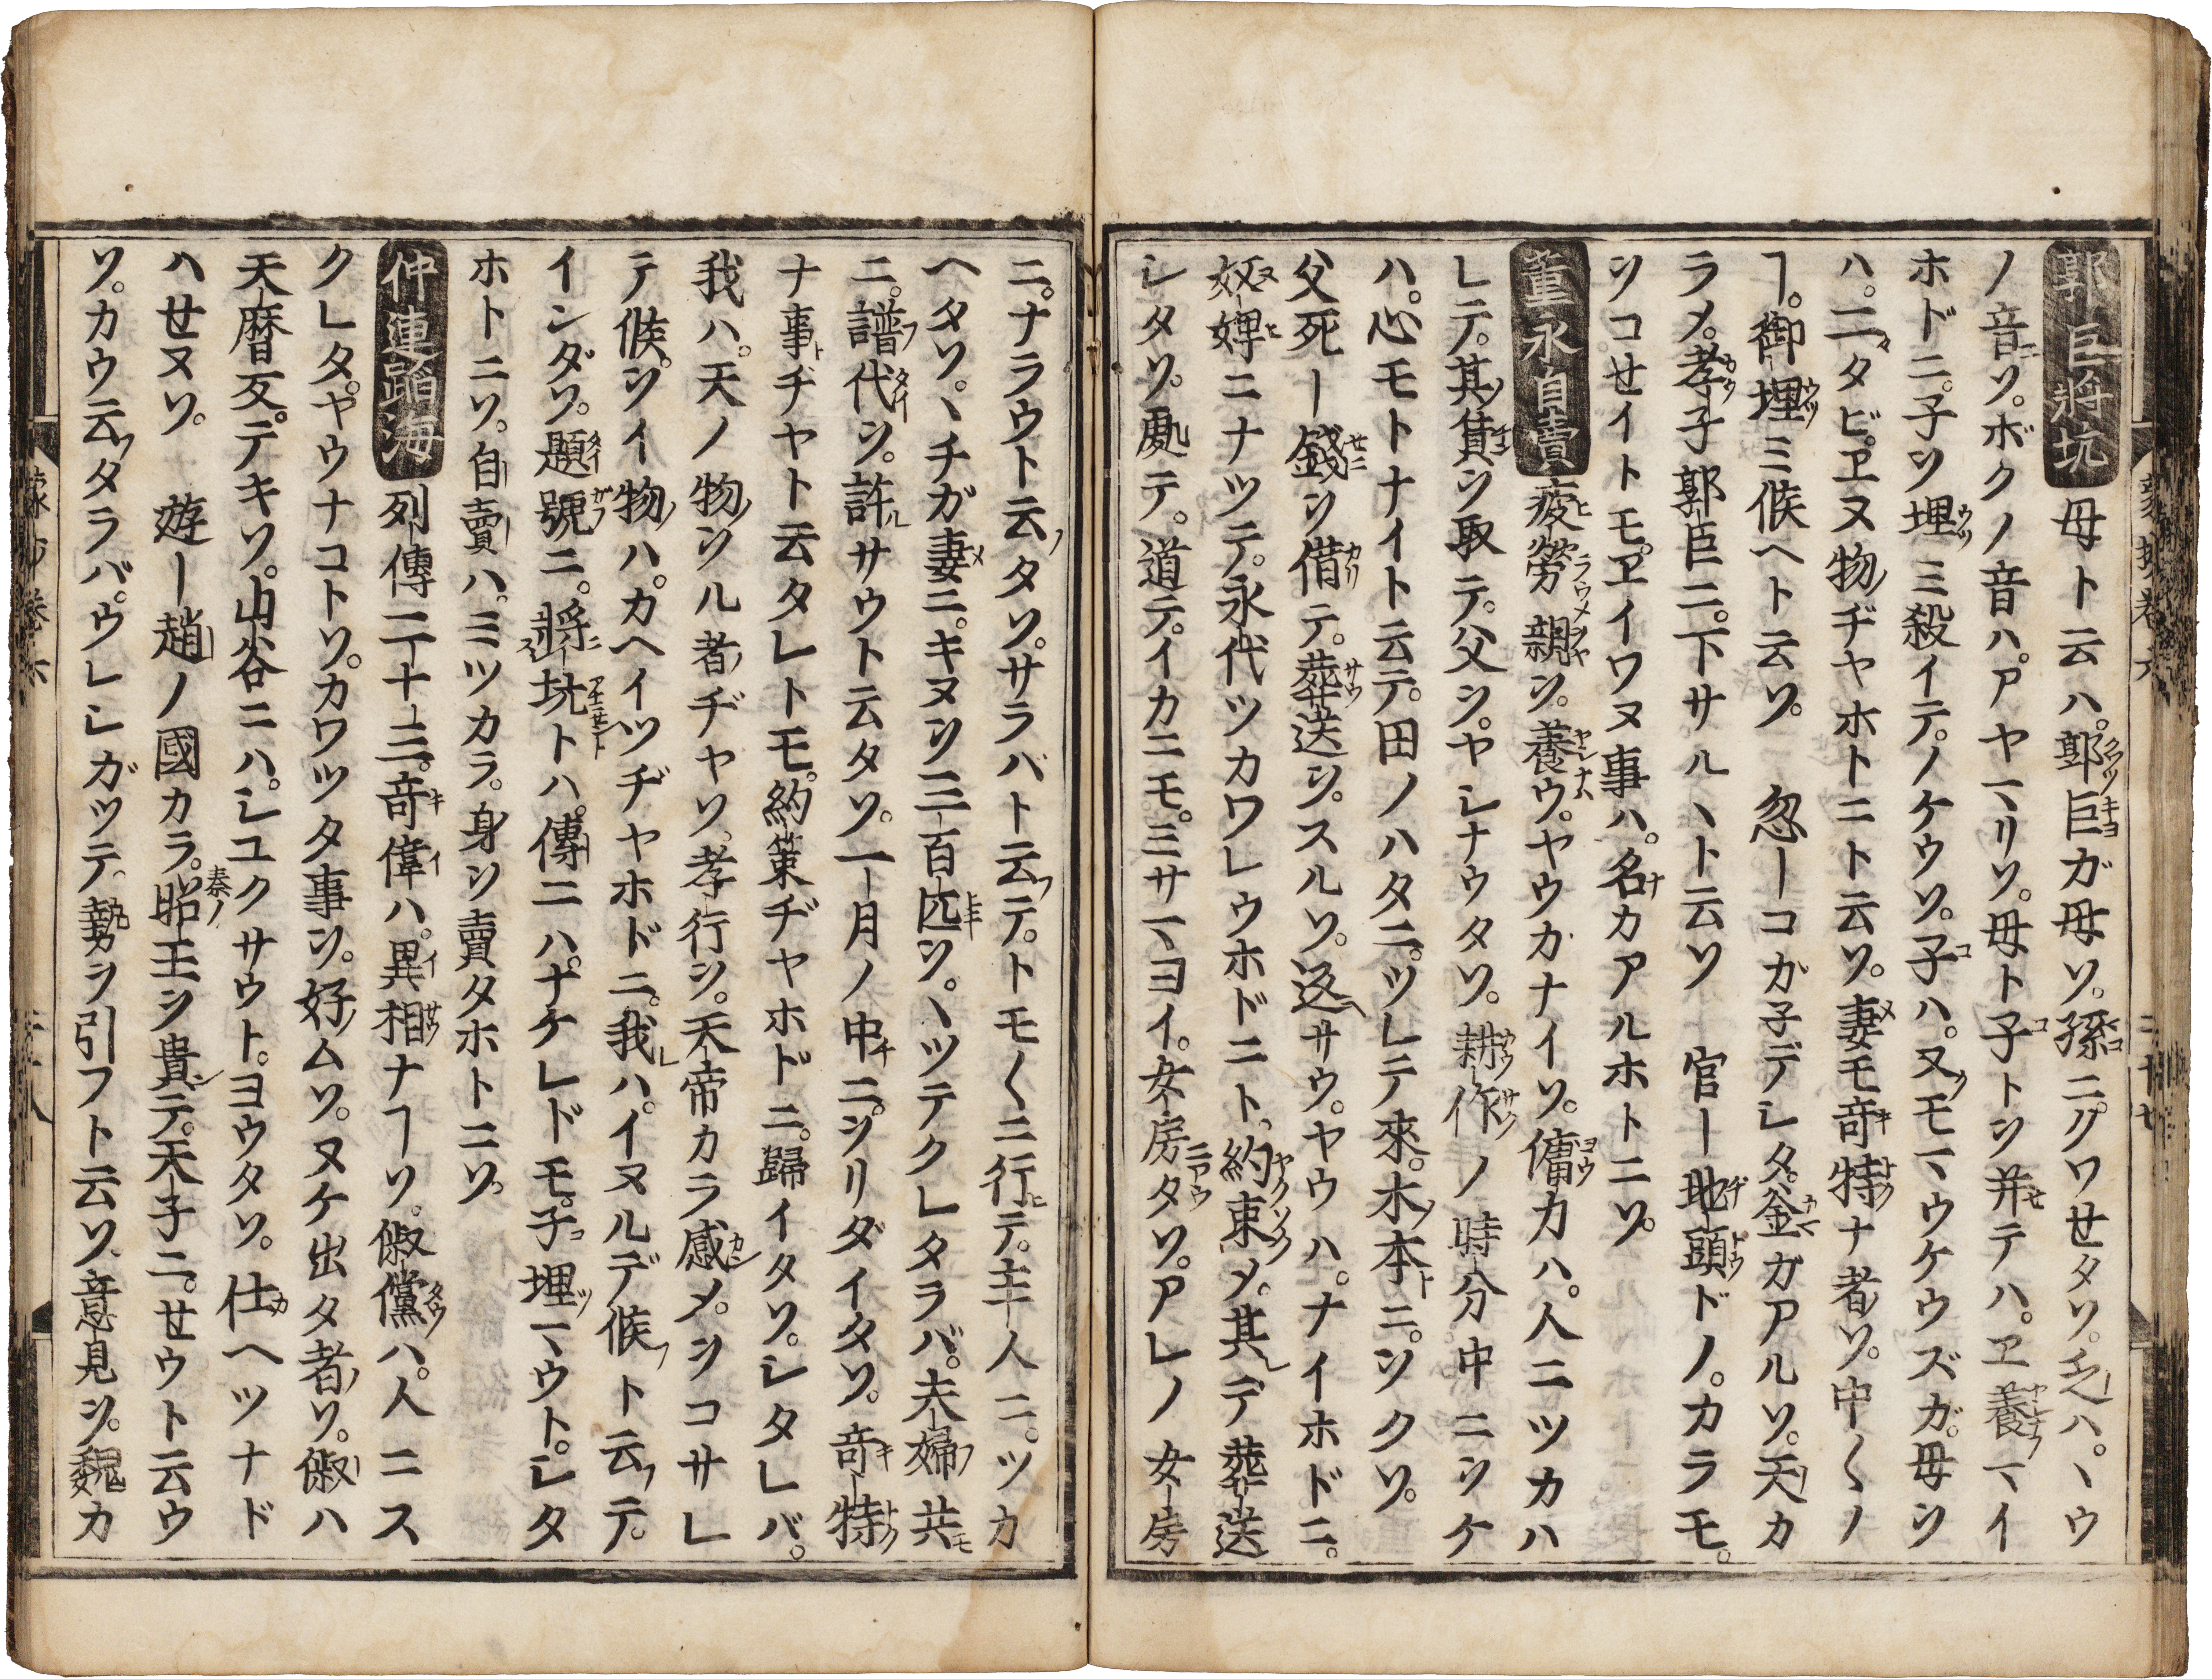 郭巨将坑 母ト云ハ。郭巨ガ母ソ。孫ニクワセタソ。乏ハ。ヽウ
ノ音ソ。ボクノ音ハ。アヤマリソ。母ト子トヲ并テハ。ヱ養マイ
ホドニ。子ヲ埋ミ殺イテ。ノケウソ。子ハ。又モマウケウズガ。母ヲ
ハ。二タビ。ヱヌ物ヂヤホトニト云ソ。妻モ竒特ナ者ソ。中〱ノ
ヿ。御埋ミ候ヘト云ソ 忽ーコガ子デシタ。釜ガアルソ。天カ
ラメ。孝子郭巨ニ。下サルヽト云ソ 官ー地頭ドノ。カラモ。
ヲコせイトモ。ヱイワヌ事ハ。名カアルホトニソ。
董永自賣 疲労 親ヲ。養ウ。ヤウカナイソ。傭力ハ。人ニツカハ
レテ。其賃ヲ取テ。父ヲ。ヤシナウタソ。耕作ノ時分中ニヲケ
ハ。心モトナイト云テ。田ノハタニ。ツレテ來。木本ニ。ヲクソ。
父死ー錢ヲ借テ。葬送ヲ。スルソ。返サウ。ヤウハ。ナイホドニ。
奴婢ニナツテ。永代ツカワレウホドニト。約束メ。其デ葬送
シタソ。䖏テ。道テ。イカニモ。ミサマヨイ。女房タソ。アレノ女房
ニ。ナラウト云タソ。サラバト云テ。トモ〱ニ行テ。主人ニ。ツカ
ヘタソ。ヽチガ妻ニ。キヌヲ三百匹ヲ。ヽツテクレタラバ。夫婦共
ニ。譜代ヲ。許サウト云タソ。一月ノ中ニ。ヲリダイタソ。竒特
ナ事ヂヤト云タレトモ。約策ヂヤホドニ。歸イタソ。シタレバ。
我ハ。天ノ物ヲル者ヂヤソ。孝行ヲ。天帝カラ感メ。ヲコサレ
テ候。ヲイ物ハ。カヘイツヂヤホドニ。我ハ。イヌルデ候ト云テ。
インダソ。題號ニ。將坑トハ。傳ニハ。ナケレドモ。子埋マウト。シタ
ホトニソ。自賣ハ。ミツカラ。身ヲ賣タホトニソ。
仲連蹈海 列傳二十三。竒偉ハ。異相ナヿソ。俶儻ハ。人ニス
クレタ。ヤウナコトソ。カワツタ事ヲ。好ムソ。ヌケ出タ者ソ。俶ハ
天暦反。テキソ。山谷ニハ。シユクサウト。ヨウタソ。仕ヘツナド
ハせヌソ。 遊ー趙ノ國カラ。昭王ヲ貴テ。天子ニ。せウト云ウ
ソ。カウ云タラバ。ウレシガツテ。勢ヲ引フト云ソ。意見ヲ。魏カ